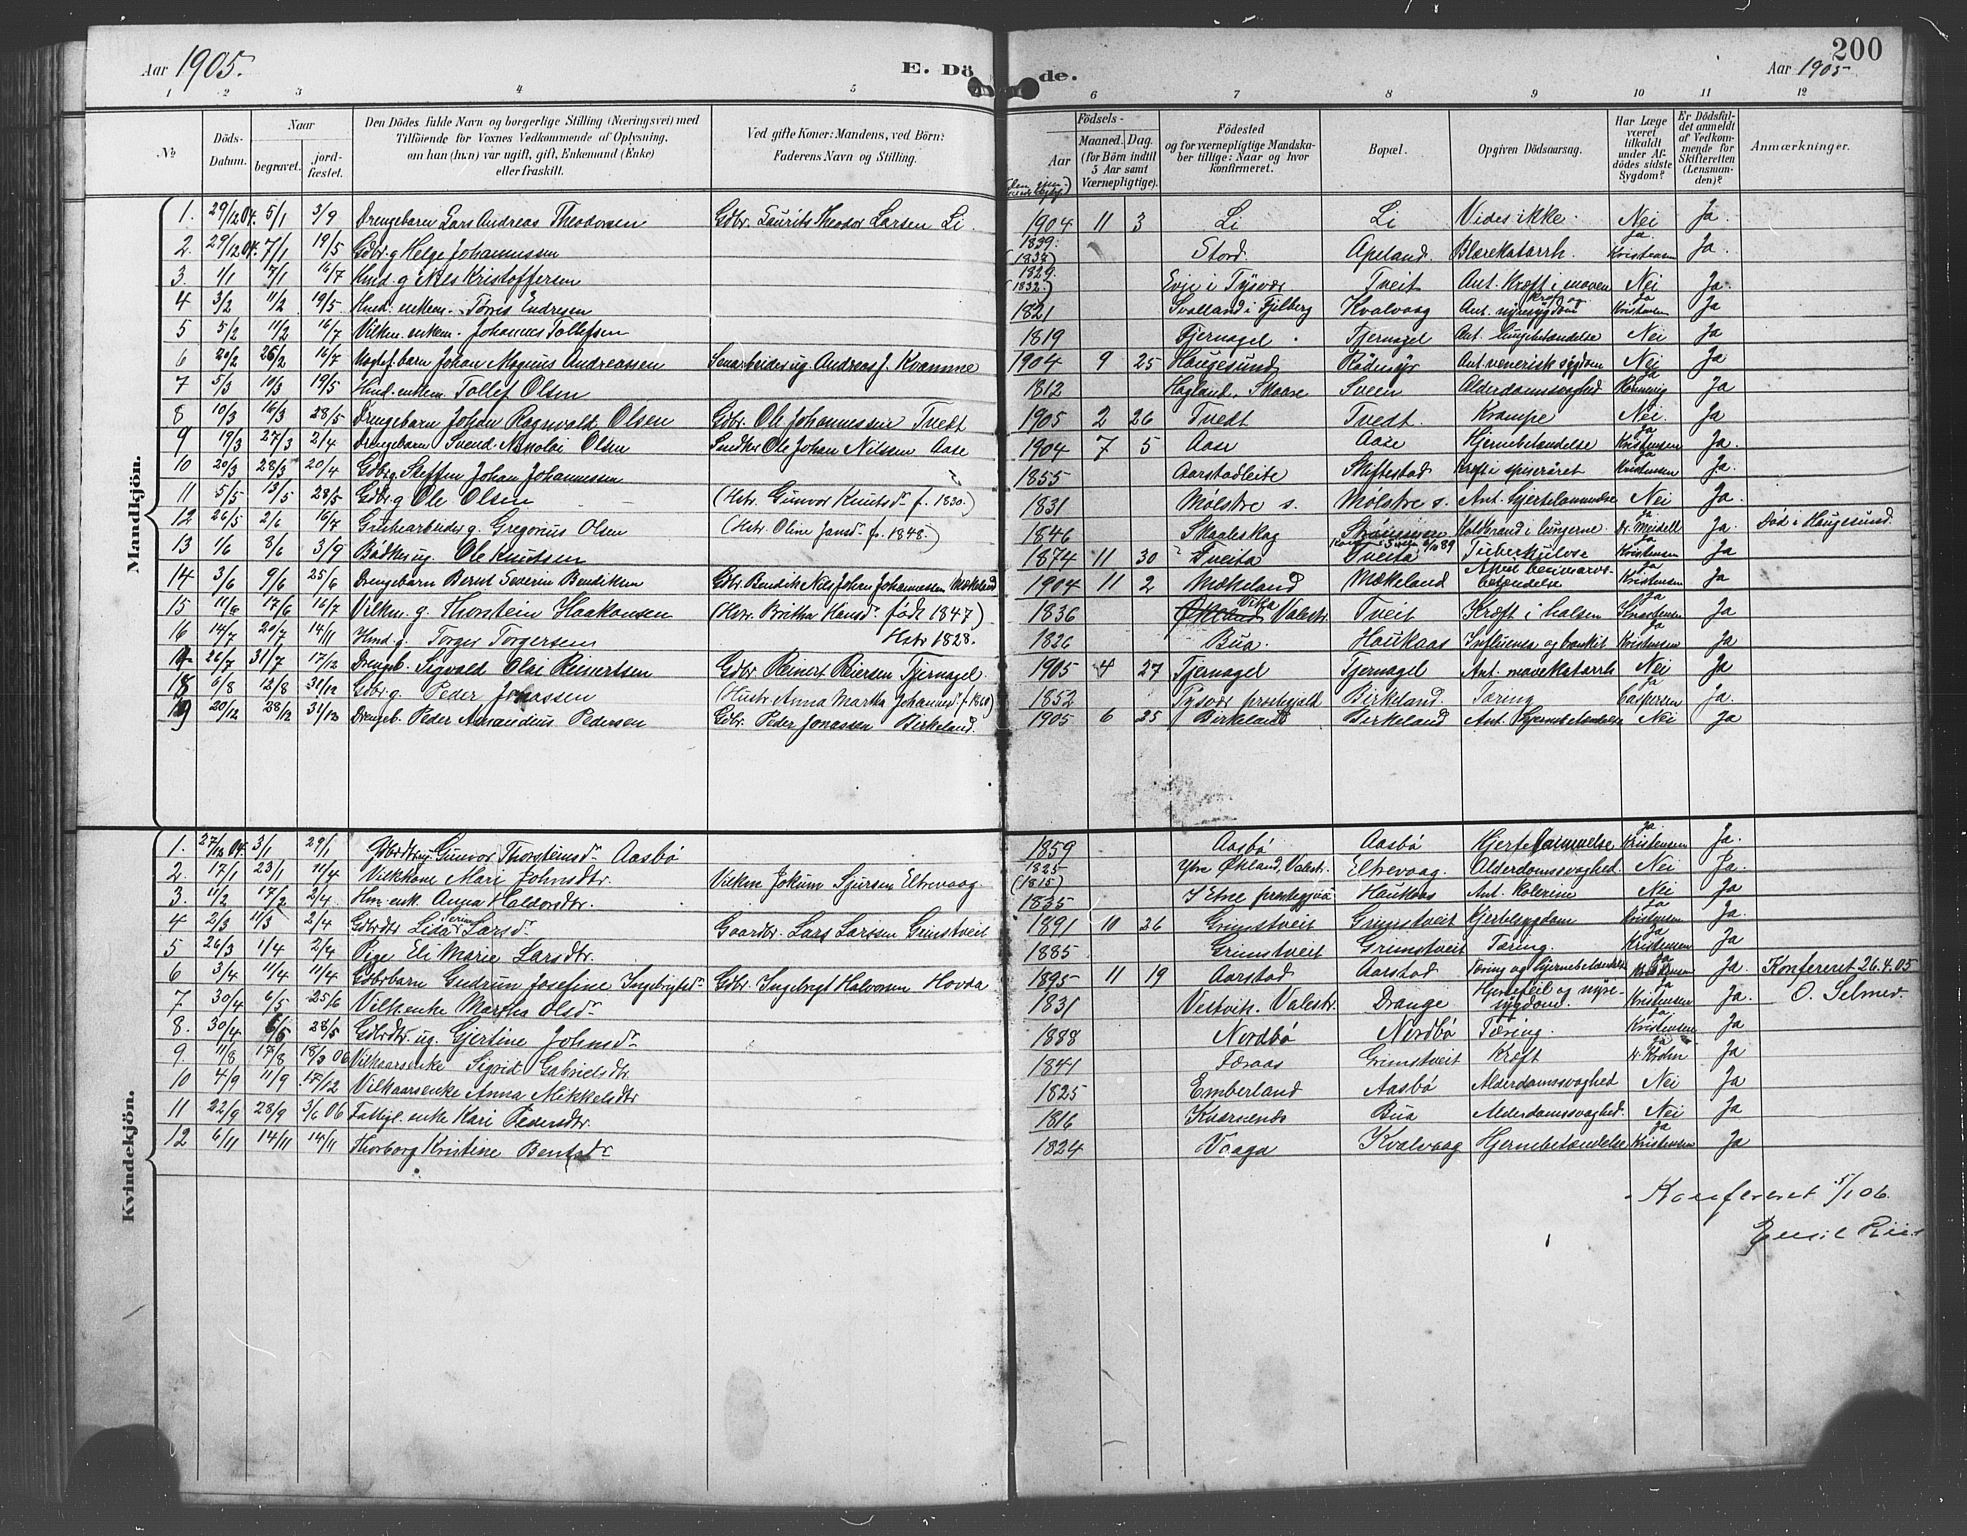 Aar 1905. E. Dö de. Aar 1905 200
1 2 3 4 5 6 7 8 9 10 11 12
№ Döds-Datum. Naar begravet. jord-fæstet. Den Dödes fulde Navn og borgerlige Stilling (Næringsvei) med Tilföiende for Voxnes Vedkommende af Oplysning, om han (hun) var ugift, gift, Enkemand (Enke) eller fraskilt. Ved gifte Koner: Mandens, ved Börn: Faderens Navn og Stilling. Födsels- Aar Maaned. Dag. (for Börn indtil 5 Aar samt Værnepligtige). Födested og for værnepligtige Mandskaber tillige: Naar og hvor konfirmeret. Bopæl. Opgiven Dödsaarsag. Har Læge været tilkaldt under Afdödes sidste Sygdom? Er Dödsfaldet anmeldt af Vedkommende for Skifteretten (Lensmanden)? Anmærkninger.
Mandkjön.
1. 29/12 04. 5/1 3/9 Drengebarn Lars Andreas Theodorsen Gdbr. Laurits Theodor Larsen Li 1904 11 3 Li Li Vides ikke. Nei Ja
2. 29/12 04. 7/1 19/5 Gdbr. g Helge Johannessen 1839. (1838) Stord Apeland. Blærekatarrh. Ja Kristensen Ja.
3 1/1 17/1 16/7 Hmd. g Nils Kristoffersen 1829. (1832.) Evje i Tysvær Tveit Ant. Kræft i maven Nei Ja
4 3/2 11/2 19/5 Hmd. enkem. Tørris Endresen 1821 Svolland i Fjelberg Kvalvaag Ant. nyresygdom Ja Kristensen Ja
5 5/2 11/2 16/7 Vilkm. enkem. Johannes Tollefsen 1819 Tjernagel Tjernagel Ant. Lungebetændelse Nei Ja
6 20/2 26/2 16/7 Uægtef. barn Johan Magnus Andreassen Andreas J. Kvamme 1904 9 25 Haugesund Rødmyr Ant. venerisk sygdom Nei Ja
7 5/3 10/3 19/5 Hmd. enkem. Tollef Olsen 1812 Hagland, Skaare Sveen Alderdomssvaghed Ja Ja
8 10/3 16/3 28/5 Drengebarn Johan Ragnvald Olsen Gdbr. Ole Johannessen Tvedt 1905 2 26 Tvedt Tvedt. Krampe Nei. Ja
9 19/3 27/3 2/4 Drengebarn Svend Nikolai Olsen Snedker Ole Johan Nilssen Aase 1904 7 5 Aase Aase Hjernebetændelse Ja Kristensen Ja.
10 20/3 28/3 20/4 Gdbr. g Steffen Johan Johannessen 1855 Aarstadleite Skiftestad Kræft i spiserøret Kristensen Ja.
11 5/5 13/5 28/5 Gdbr. g Ole Olsen (Hstr. Gunvor Knutsdr. f. 1830.) 1831 Mølstre s. Mølstre s. Ant. Hjertelammelse Nei Ja.
12 26/5 2/6 16/7 Grubearbeider g. Gregorius Olsen (Hstr. Oline Jansdr. f. 1848.) 1846 Skaaleskog Strømmen Koldbrand i lungerne. Dr. Meidell Ja. Död i Haugesund.
13 1/6 8/6 3/9 Bödker ug. Ole Knutsen 1874 11 30 Tveita Tveita Tuberkulose Ja Kristensen Ja
14 3/6 9/6 25/6 Drengebarn Bernt Severin Bendiksen Gdbr. Bendik Nils Johan Johannessen Mækeland 1904 11 2 Mækeland Mækeland Akut benmarvsbetændelse Ja Kristensen Ja
15 11/6 17/6 16/7 Vilkm. g. Thorstein Haakonsen (Hstr. Britha Hansdr. født 1847) 1836 Vika Valestr. Tveit Kræft i halsen Ja Kristensen Ja
16 14/7 20/7 14/11 Hmd. g. Torger Torgersen Hstr 1828. 1826 Bua. Haukaas Influensa og bronkit Ja Kristensen Ja
17 26/7 31/7 17/12 Drengeb. Sigvald Olai Reinertsen Gdbr. Reinert Reiersen Tjernagel 1905 4 27 Tjernagel Tjernagel Ant. mavekatarrh Nei Ja
18 6/8 12/8 31/12 Gdbr. g. Peder Jonassen (Hustr. Anna Martha Johannesdr. f. 1860) 1852 Tysvær prestegjeld Birkeland. Tæring. Ja Caspersen Ja.
19 20/12 28/12 31/12 Drengeb. Peder Amandius Pedersen Gdbr. Peder Jonassen Birkeland. 1905 6 25 Birkeland Birkeland Ant. Hjernebetændelse Nei Ja
Kvindekjön.
1. 27/12 04. 3/1 29/1 Gunvor Thorstensdr. Aasbø 1859 Aasbø Aasbø Hjertelammelse Ja Kristensen Ja.
2. 17/1 23/1 11/4 Vilkkone Mari Johnsdtr. Vilkm Jokum Sjursen Eltrevaag. 1825 (1815) Ytre Økland, Valestr. Eltrevaag. Alderdomssvaghed Nei Ja.
3. 11/2 17/2 2/4 Hm. enk. Anna Haldorsdtr. 1835 I Etne prestegjeld Haukaas Ant. Kolerine Nei Ja
4 2/3 11/3 2/4 Gdbrdtr Lisa Serine Larsdr. Gaardbr. Lars Larssen Grimstveit 1891 10 26 Grimstveit Grimstveit Hjertesygdom Ja Kristensen Ja.
5 26/3 1/4 2/4 Pige Eli Marie Larsdtr. 1885 Grimstveit Grimstveit Tæring. Ja Kristensen Ja
6 3/4 11/4 11/4 Gdbrbarn Gudrun Josefine Ingebrigtsdr. Gdbr. Ingebregt Halvorsen Hovda 1895 11 19 Aarstad Aarstad Tæring og hjernebetændelse Ja Kristensen Ja. Konfereret 26.4.05
7 30/4 6/5 25/6 Vilk enke Martha Olsdr. 1831 Vestvik. Valestr. Drange Hjertefeil og nyresygdom. Ja Kristensen Ja. O. Selmer.
8. 30/4 6/5 28/5 Gdbrdtr. ug. Gjertine Johnsdr. 1888 Nordbø Nordbø Tæring. Kristensen Ja
9. 11/8 17/8 18/3 06 Vilkaarsenke Sigrid Gabrielsdtr. 1841 Færaas Grimstveit Kræft Ja Dr. Krohn Ja
10 4/9 11/9 17/12 Vilkaarsenke Anna Mikkelsdtr 1825 Emberland Aasbø Alderdomssvaghed Nei Ja
11 22/9 28/9 3/6 06 Fattigl. enke Kari Pedersdtr. 1816 Kvarnenes Bua Alderdomssvaghed. Nei Ja
12 6/11 14/11 14/11 Thorborg Kristine Bentsdr. 1824 Vaaga Kvalvaag Hjernebetændelse Ja Kristensen Ja
Konfereret 5/1 06.
Emil Riis